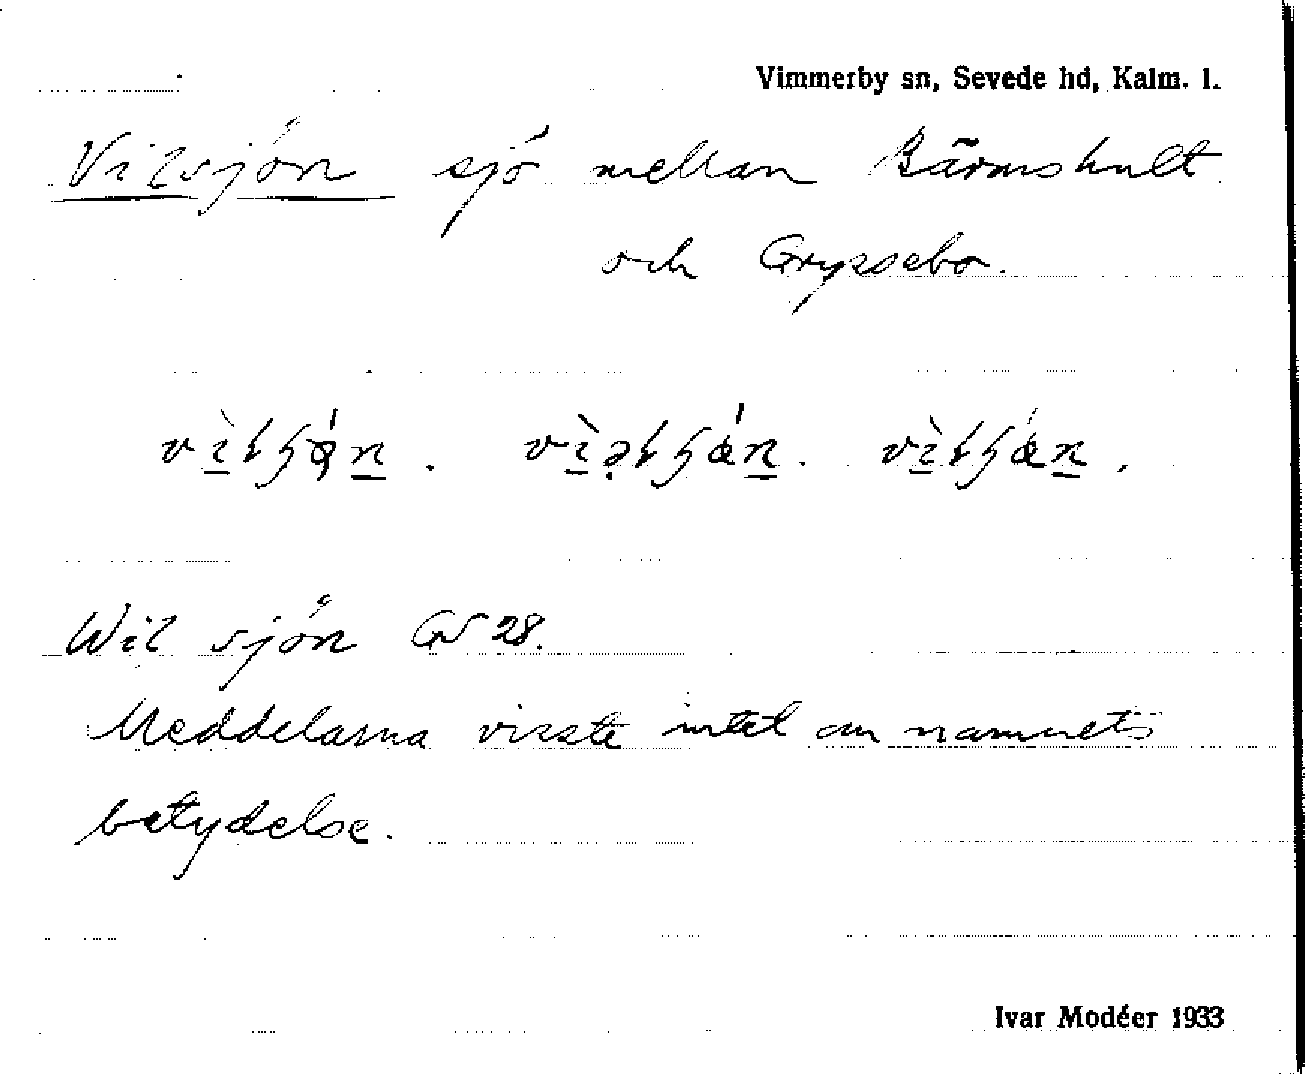 Vimmerby sn, Sevede hd, Kalm. l.
Vilsjön sjö mellan Bärmshult
och Gryssebo.
Wil sjön GV 28.
Meddelarna visste intet om namnets
betydelse.
Ivar Modéer 1933